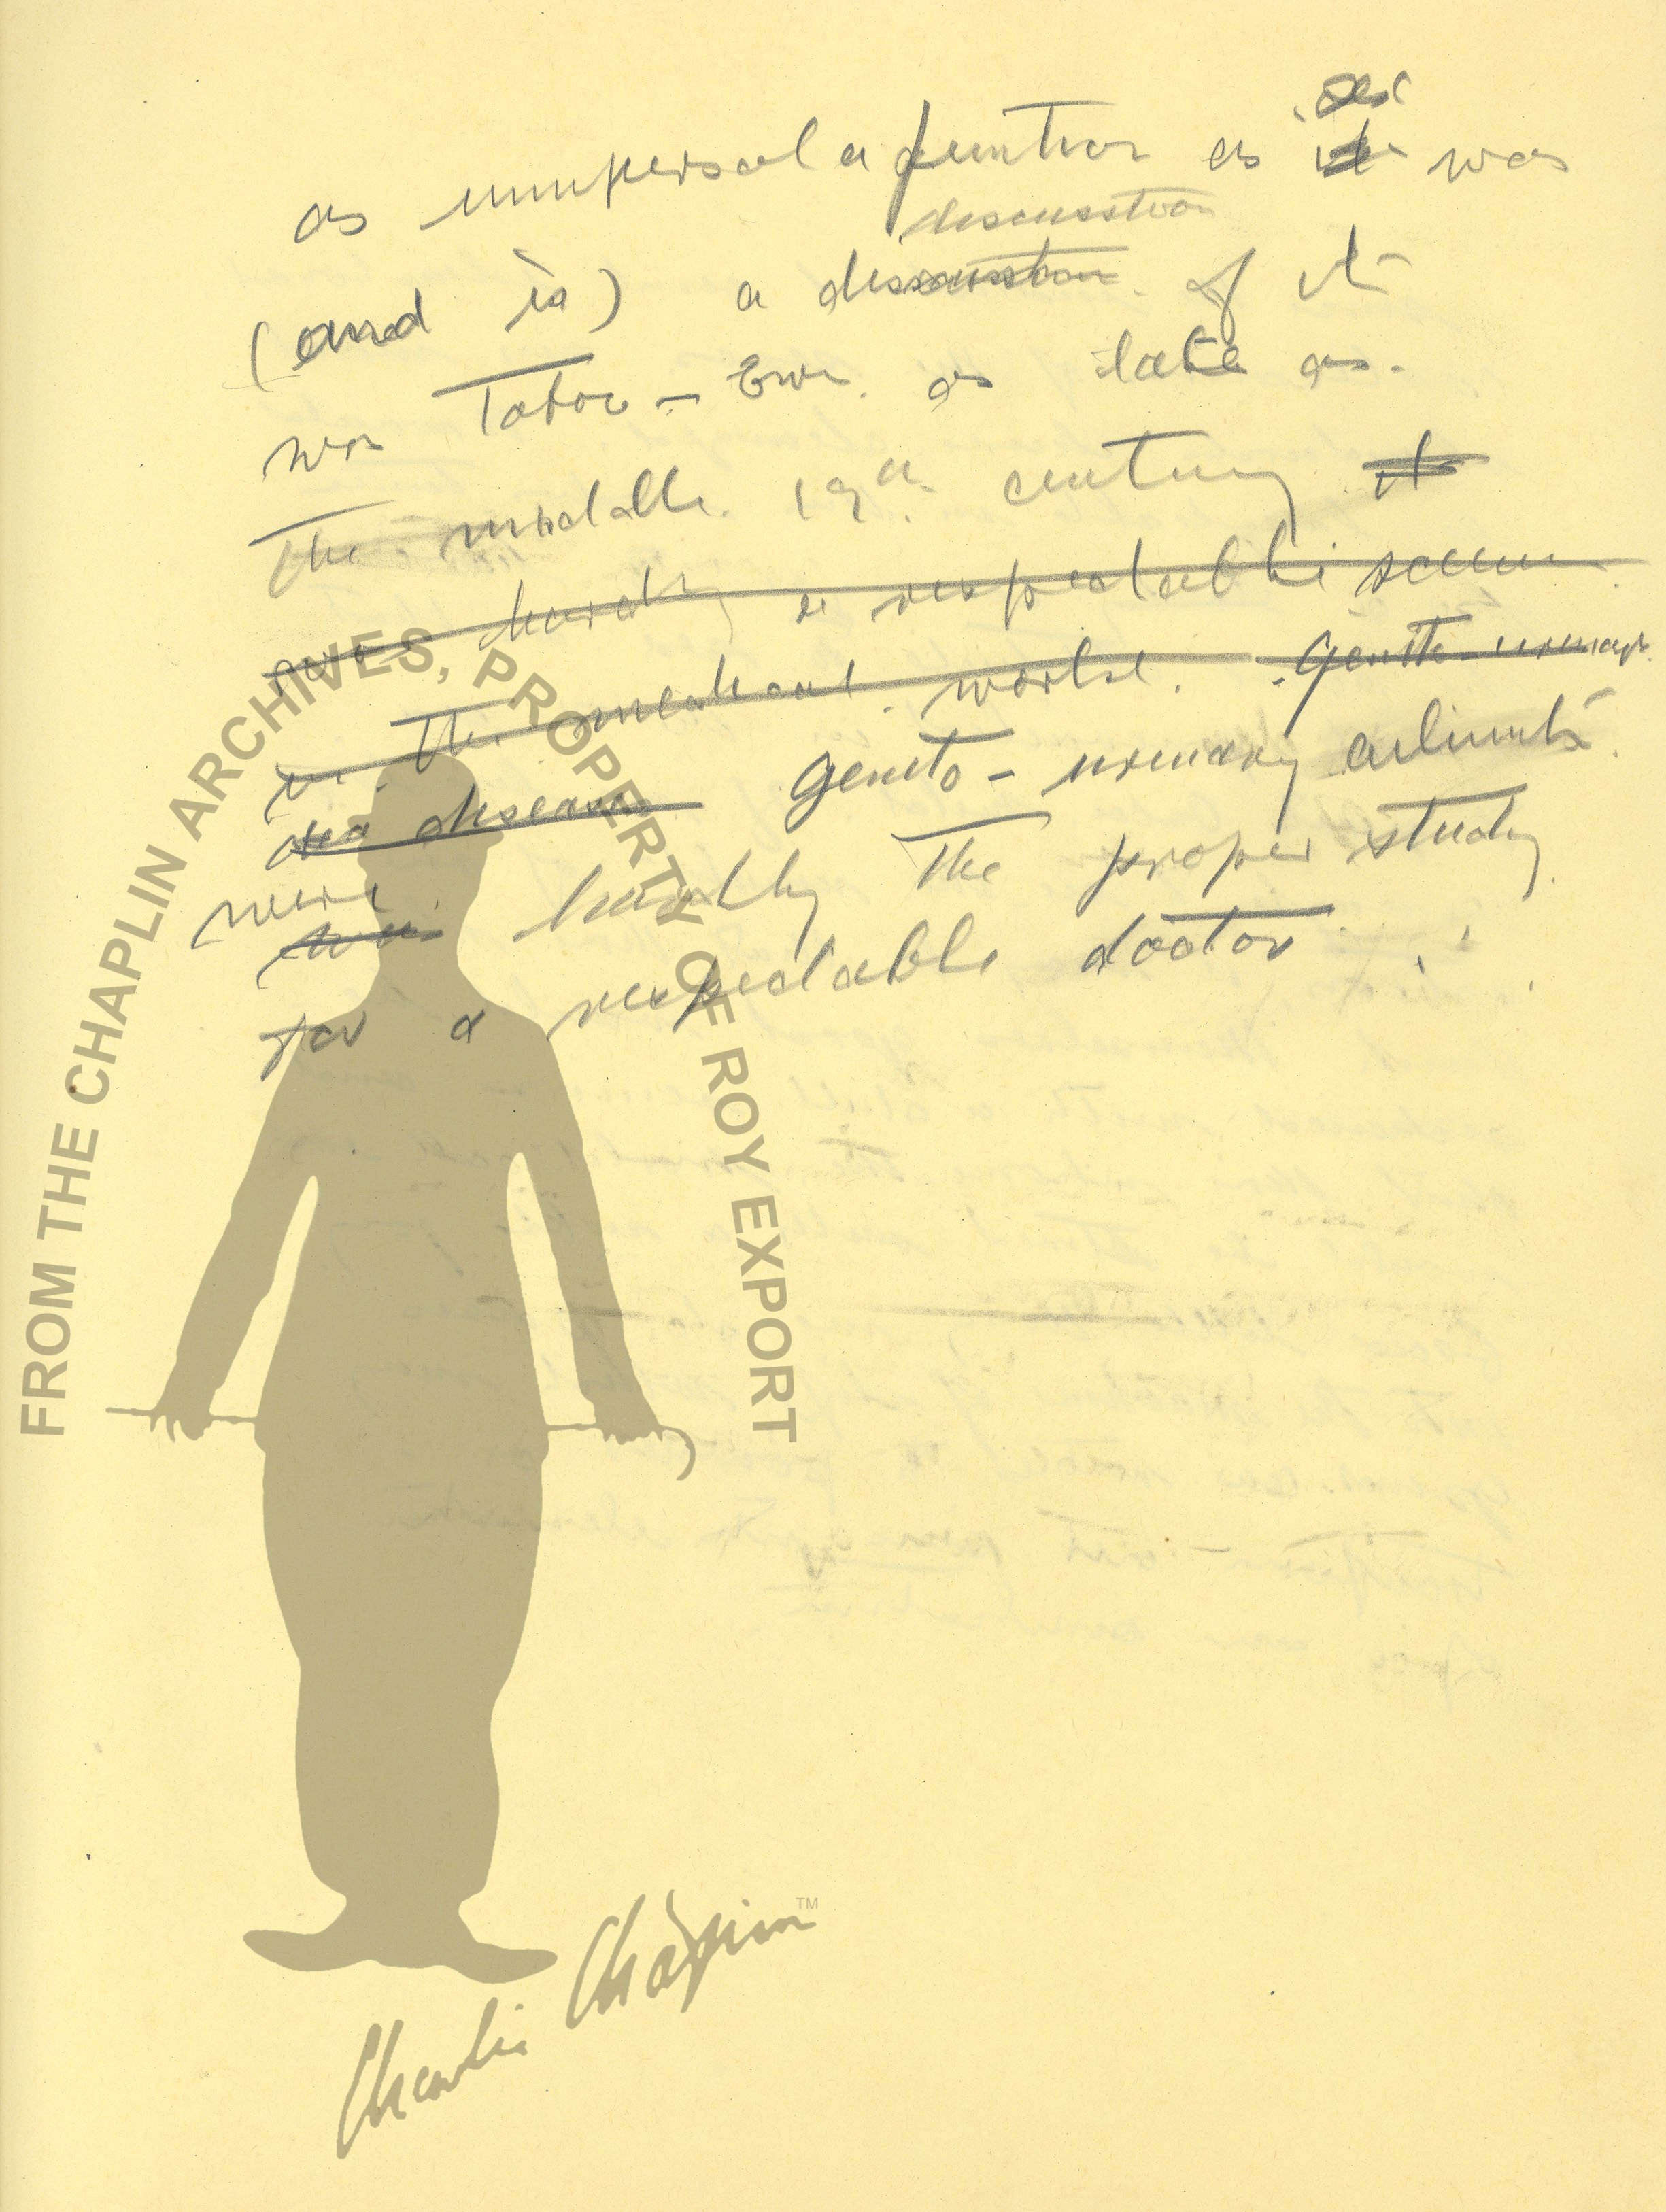 sex
as universal a function as it was
discussion
(and is) a discussion of it
was Taboo – Even as late as
The middle 19th century it
was hardly a respectable
in the medical world. Genito-urinary
disease Genito-urinary ailments
were hardly the proper study
was
for a respectable doctor.
FROM THE CHAPLIN ARCHIVES, PROPERTY OF ROY EXPORT
Charlie Chaplin™